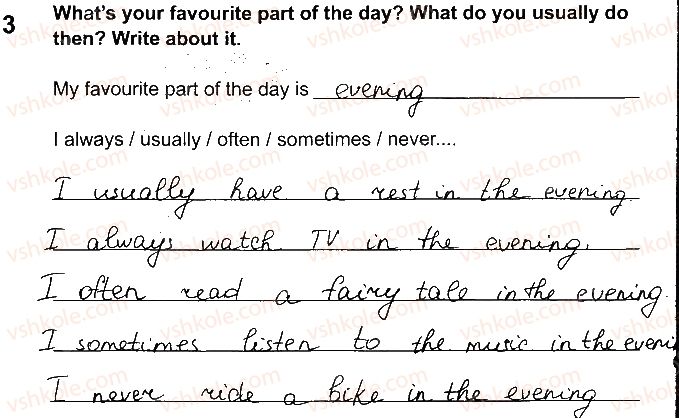 3 What's your favourite part of the day? What do you usually do
then? Write about it.
My favourite part of the day is evening
I always / usually / often / sometimes / never....
I usually have a rest in the evening
I always watch TV in the evening.
I often read a fairy tale in the evening.
I sometimes listen to the music in the eveni
I never ride a bike in the evening